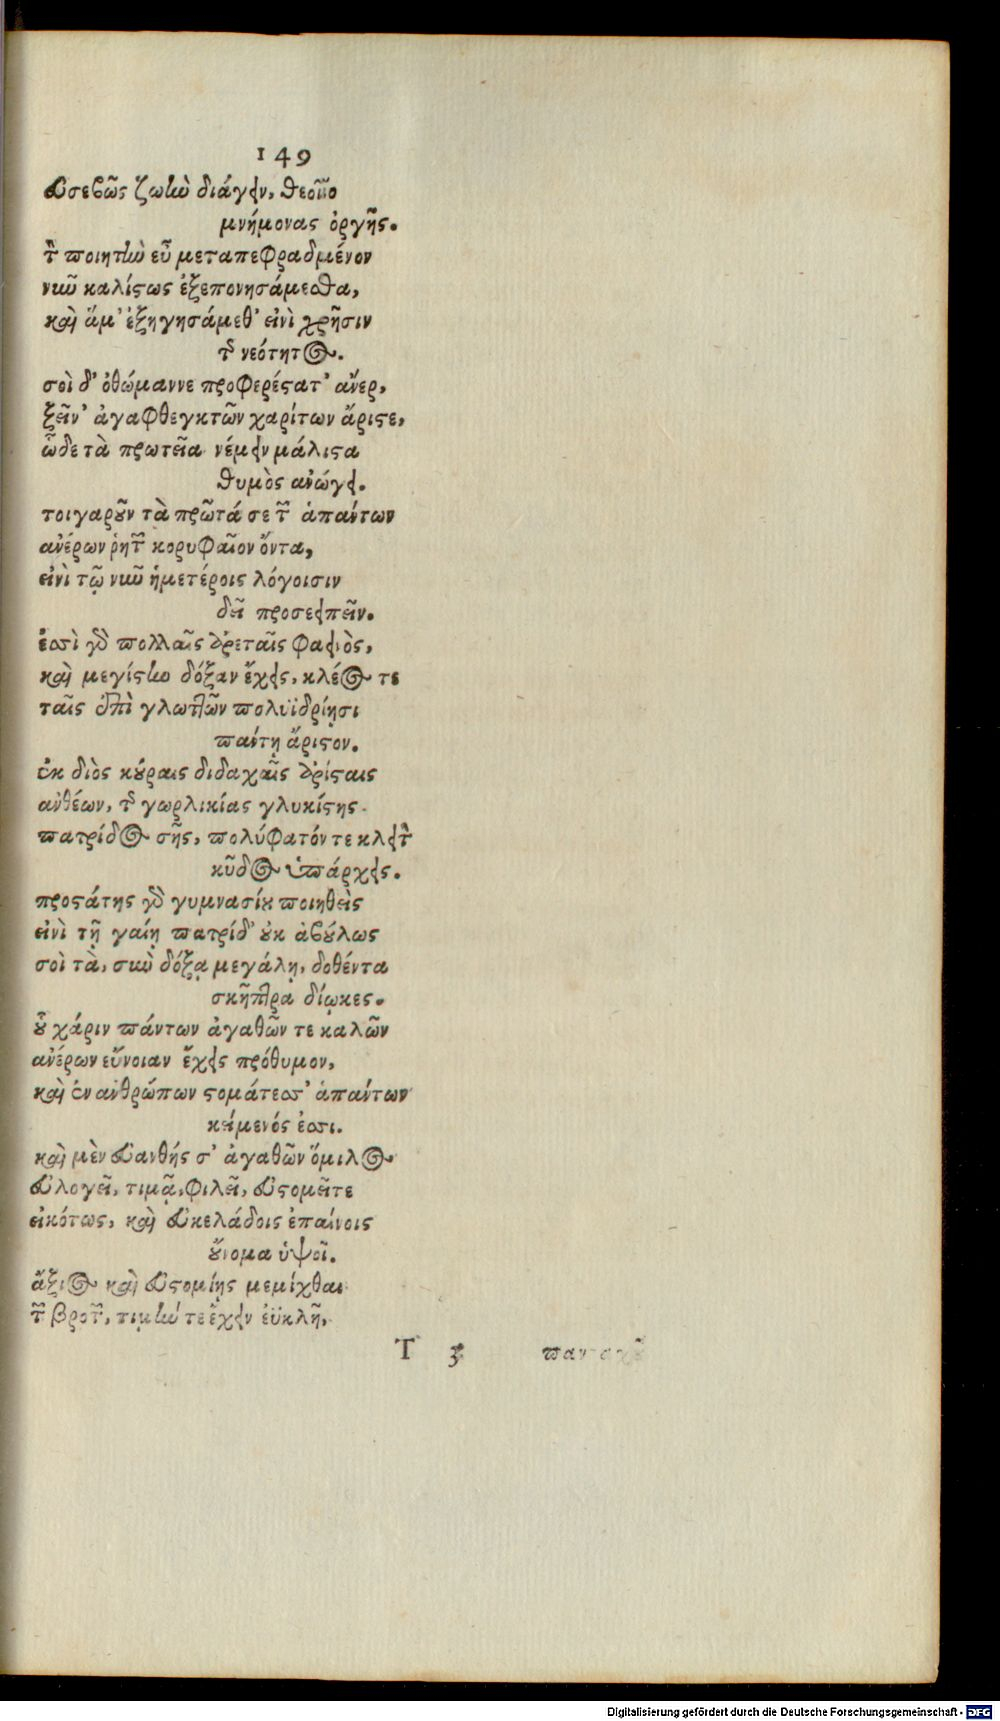 149
εὐσεβῶς ζωὴν διάγειν, θεοῖο
μνήμονας ὀργῆς.
τὸν ποιητὴν εὖ μεταπεφραδμένον
νῦν καλίστως ἐξεπονησάμεσθα,
καὶ ἅμ' ἐξηγησάμεθ' εἰνὶ χρῆσιν
τῆς νεότητος.
σοὶ δ' ὀθώμαννε προφερέστατ' ἄνερ,
ξεῖν' ἀγαφθεγκτῶν χαρίτων ἄριστε,
ὧδε τὰ πρωτεῖα νέμειν μάλιστα
θυμὸς ἀνώγει.
τοιγαροῦν τὰ πρῶτά σε τῶν ἁπάντων
ἀνέρων ῥητῶν κορυφαῖον ὄντα,
εἰνὶ τῷ νῦν ἡμετέροις λόγοισιν
δεῖ προσειπεῖν.
ἐσσὶ γὰρ πολλαῖς ἀρεταῖς φαεινὸς,
καὶ μεγίστην δόξαν ἔχεις, κλέος τε
ταῖς ἐπὶ γλωττῶν πολυϊδρίῃσι
πάντῃ ἄριστον.
ἐκ διὸς κούραις διδαχαῖς ἀρίσταις
ἀνθέων, τῆς γωρλικίας γλυκίστης
πατρίδος σῆς, πολύφατόν τε κλεινὸν
κῦδος ὑπάρχεις.
προστάτης γὰρ γυμνασίου ποιηθεὶς
εἰνὶ τῇ γαίῃ πατρίδ' οὐκ ἀβούλως
σοὶ τὰ, σὺν δόξᾳ μεγάλῃ, δοθέντα
σκῆπτρα δίῳκες.
οὗ χάριν πάντων ἀγαθῶν τε καλῶν
ἀνέρων εὔνοιαν ἔχεις πρόθυμον,
καὶ ἐν ἀνθρώπων στομάτεσσ' ἁπάντων
κείμενός ἐσσι.
καὶ μὲν εὐανθής σ' ἀγαθῶν ὅμιλος
εὐλογεῖ, τιμᾷ, φιλεῖ, εὐστομεῖτε
εἰκότως, καὶ εὐκελάδοις ἐπαίνοις
οὔνομα ὑψοῖ.
ἄξιος καὶ εὐστομίῃς μεμίχθαι
τῶν βροτῶν, τιμήν τε ἔχειν ἐϋκλῆ,
T 3 πανταχοῦ